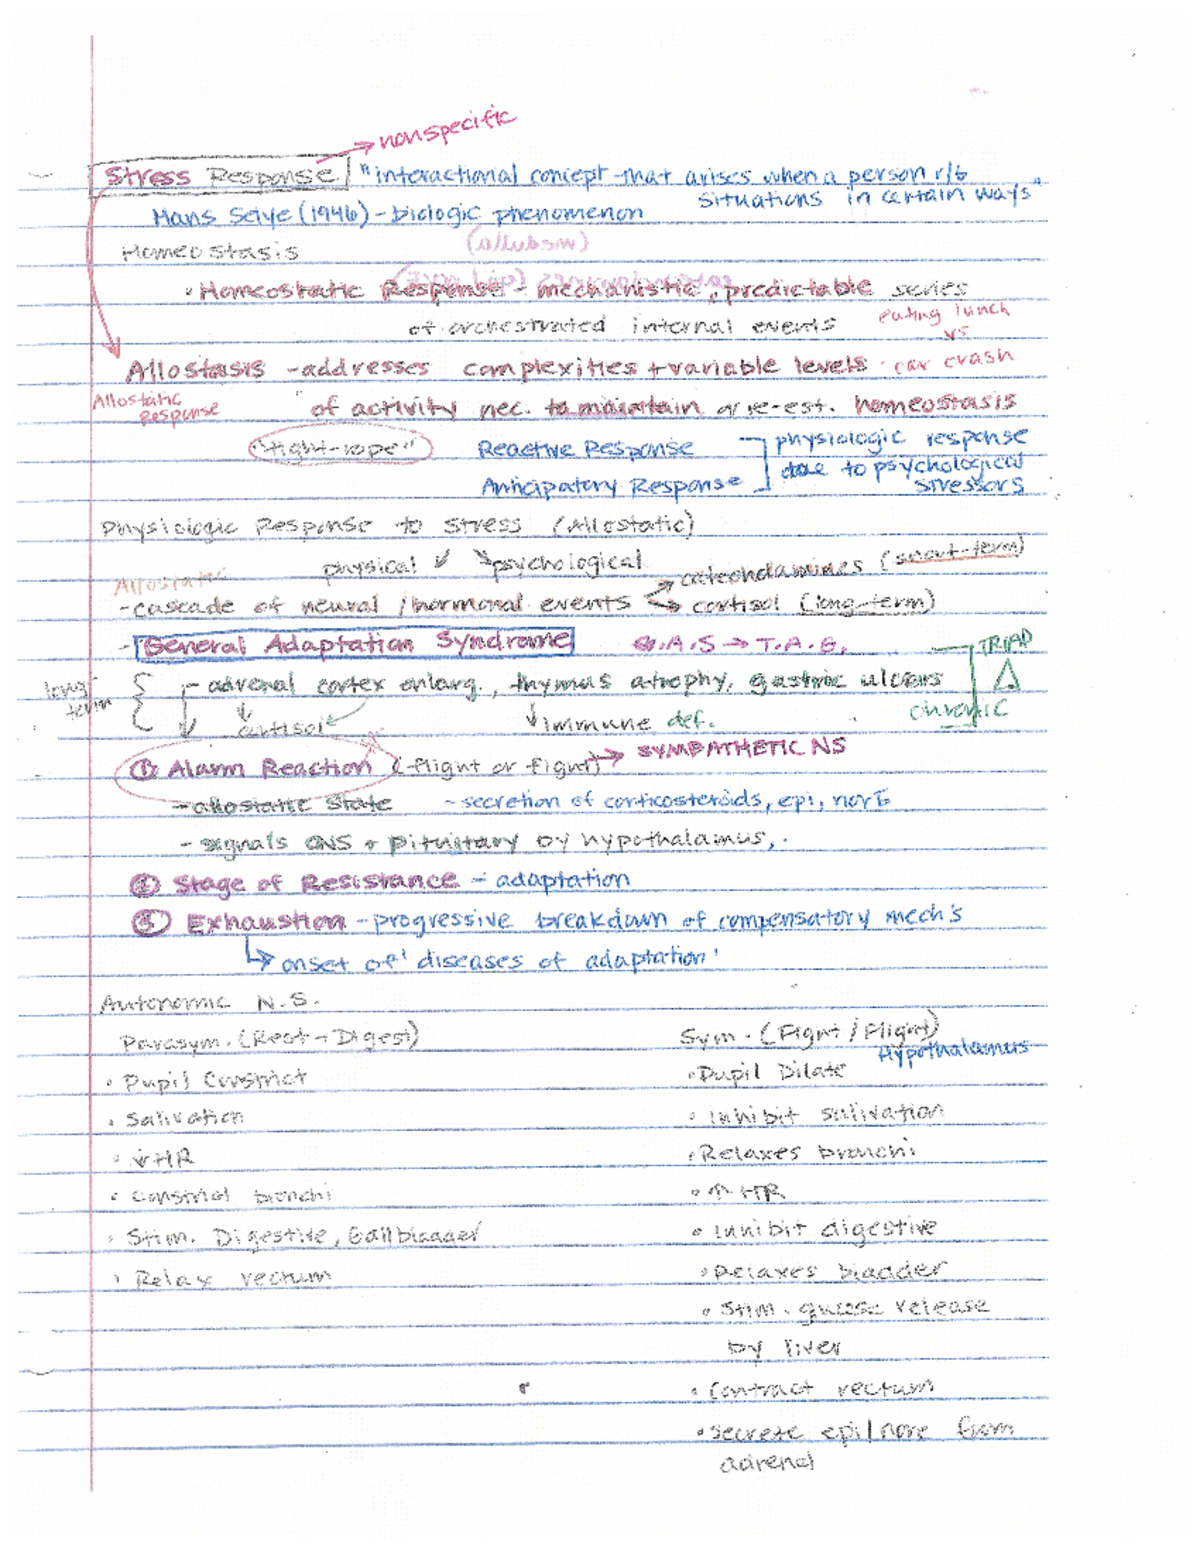 nonspecific
Stress Response "interactional concept that arises when a person r/t
situations in certain ways"
Hans Selye (1946) - biologic phenomenon
Homeostasis
(medulla)
· Homeostatic Response - mechanistic, predictable series
of orchestrated internal events
eating lunch
vs
Allostasis - addresses complexities + variable levels · car crash
Allostatic
Response
of activity nec. to maintain or re-est. homeostasis
"tight-rope" Reactive Response physiologic response
due to psychological
Anticipatory Response stressors
Physiologic Response to Stress (Allostatic)
physical psychological
Allostatic
catecholamines (short-term)
- cascade of neural / hormonal events cortisol (long-term)
- General Adaptation Syndrome G.A.S → T.A.G. TRIAD
long
term
- adrenal cortex enlarg., thymus atrophy, gastric ulcers
cortisol immune def. chronic
① Alarm Reaction (flight or fight) → SYMPATHETIC NS
- allostatic state - secretion of corticosteroids, epi, norE
- signals CNS + pituitary by hypothalamus,
② Stage of Resistance - adaptation
③ Exhaustion - progressive breakdown of compensatory mech's
↳ onset of 'diseases of adaptation'
Autonomic N.S.
Parasym. (Rest + Digest) Sym. (Fight / Flight)
Hypothalamus
· Pupil Constrict · Pupil Dilate
· Salivation · Inhibit salivation
· ↓HR · Relaxes bronchi
· Constrict bronchi · ↑ HR
· Stim. Digestive, Gallbladder · Inhibit digestive
· Relax rectum · Relaxes bladder
· Stim. glucose release
by liver
· Contract rectum
· Secrete epi/nore from
adrenal